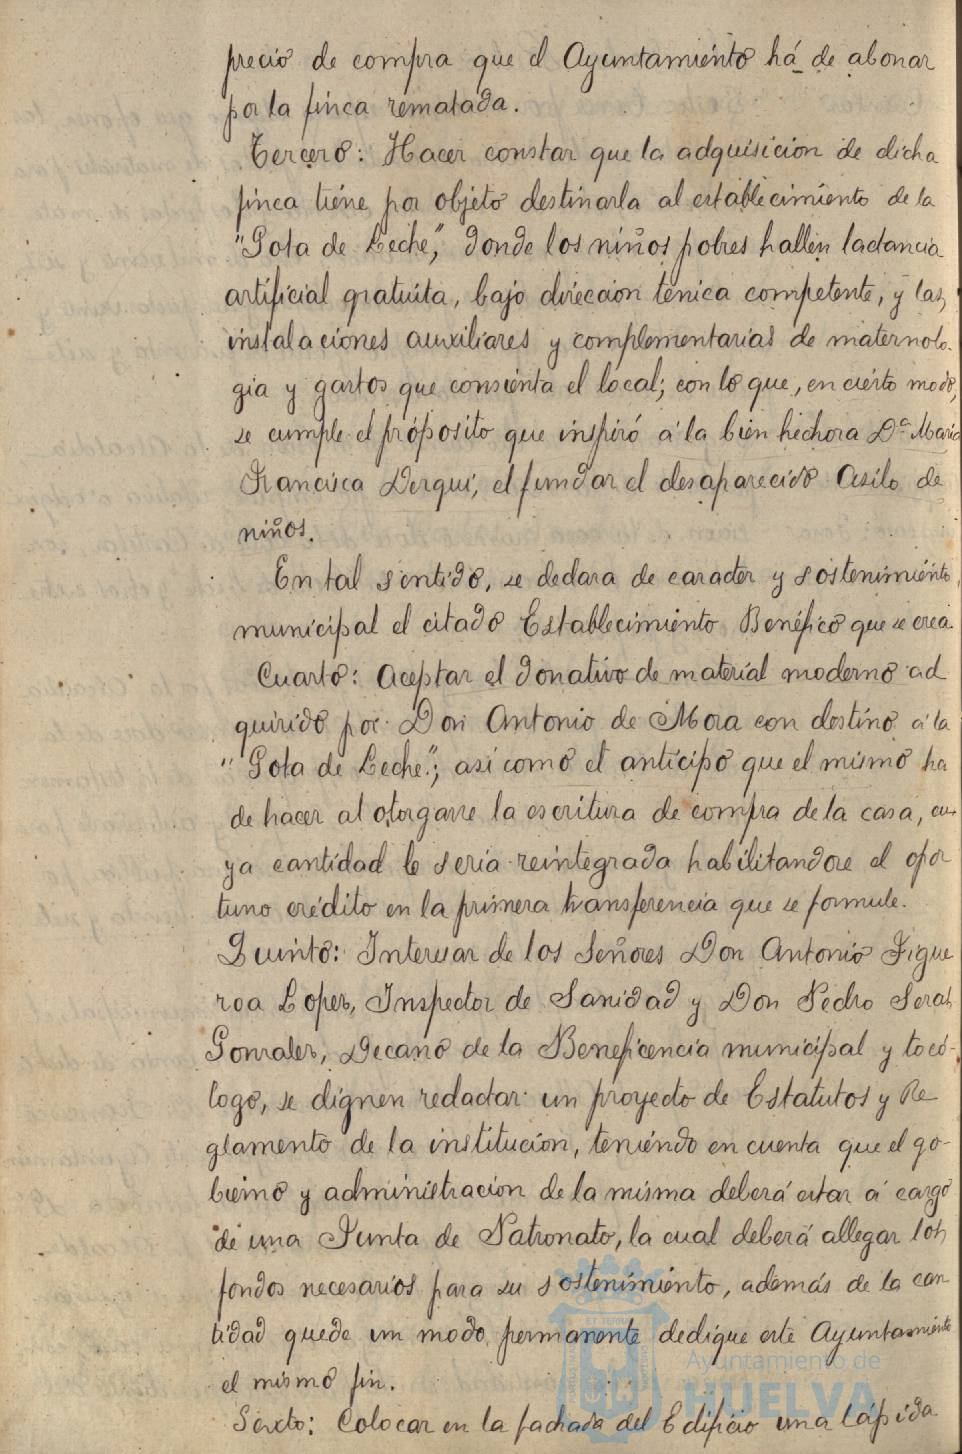 precio de compra que el Ayuntamiento há de abonar
por la finca rematada.
Tercero: Hacer constar que la adquisicion de dicha
finca tiene por objeto destinarla al establecimiento de la
"Gota de Leche", donde los niños pobres hallen lactancia
artificial gratuita, bajo direccion tenica competente, y las
instalaciones auxiliares y complementarias de maternolo-
gia y gastos que consienta el local; con lo que, en cierto modo,
se cumple el próposito que inspiró á la bien hechora Dª Maria
Francisca Derqui, el fundar el desaparecido Asilo de
niños.
En tal sentido, se declara de caracter y sostenimiento
municipal el citado Establecimiento Benéfico que se crea.
Cuarto: Aceptar el donativo de material moderno ad
quirido por Don Antonio de Mora con destino á la
"Gota de Leche"; asi como el anticipo que el mismo ha
de hacer al otorgarse la escritura de compra de la casa, cu-
ya cantidad le seria reintegrada habilitandose el opor
tuno crédito en la primera transferencia que se formule.
Quinto: Interesar de los Señores Don Antonio Figue
roa Lopez, Inspector de Sanidad y Don Pedro Seras
Gonzalez, Decano de la Beneficencia municipal y tocó-
logo, se dignen redactar un proyecto de Estatutos y Re
glamento de la institucion, teniendo en cuenta que el go-
bierno y administracion de la misma deberá estar á cargo
de una Junta de Patronato, la cual deberá allegar los
fondos necesarios para su sostenimiento, además de la can
tidad quede un modo permanente dedique este Ayuntamiento
el mismo fin.
Sexto: Colocar en la fachada del Edificio una lápida
Ayuntamiento de
HUELVA